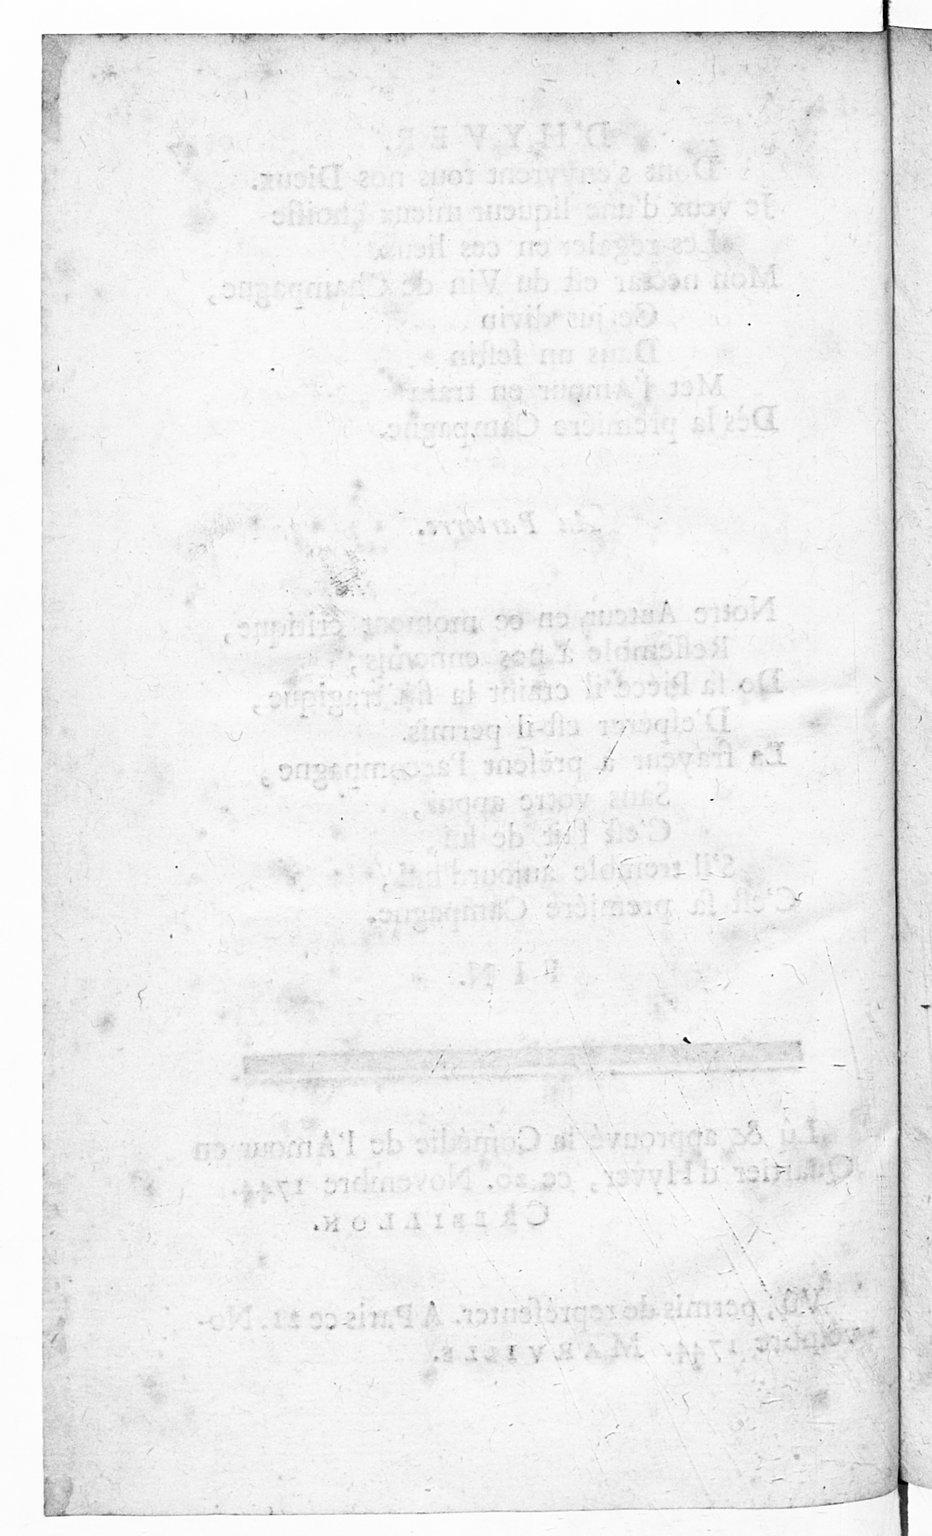 D'HYVER.
Dont s'enyvrent tous nos Dieux.
Je veux d'une liqueur mieux choisie
Les régaler en ces lieux.
Mon nectar est du Vin de Champagne,
Ce jus divin
Dans un festin
Met l'Amour en train
Dès la premiere Campagne.
Au Parterre.
Notre Auteur en ce moment critique,
Ressemble à nos ennemis ;
De sa Piéce il craint la fin tragique,
D'espérer est-il permis.
La frayeur à présent l'accompagne,
Sans votre appui,
C'est fait de lui,
S'il tremble aujourd'hui,
C'est sa premiére Campagne.
FIN.
Lû & approuvé la Comédie de l'Amour en
Quartier d'Hyver, ce 20. Novembre 1744.
CREBILLON.
Vû, permis de représenter. A Paris ce 21. No-
vembre 1744. MARVILLE.